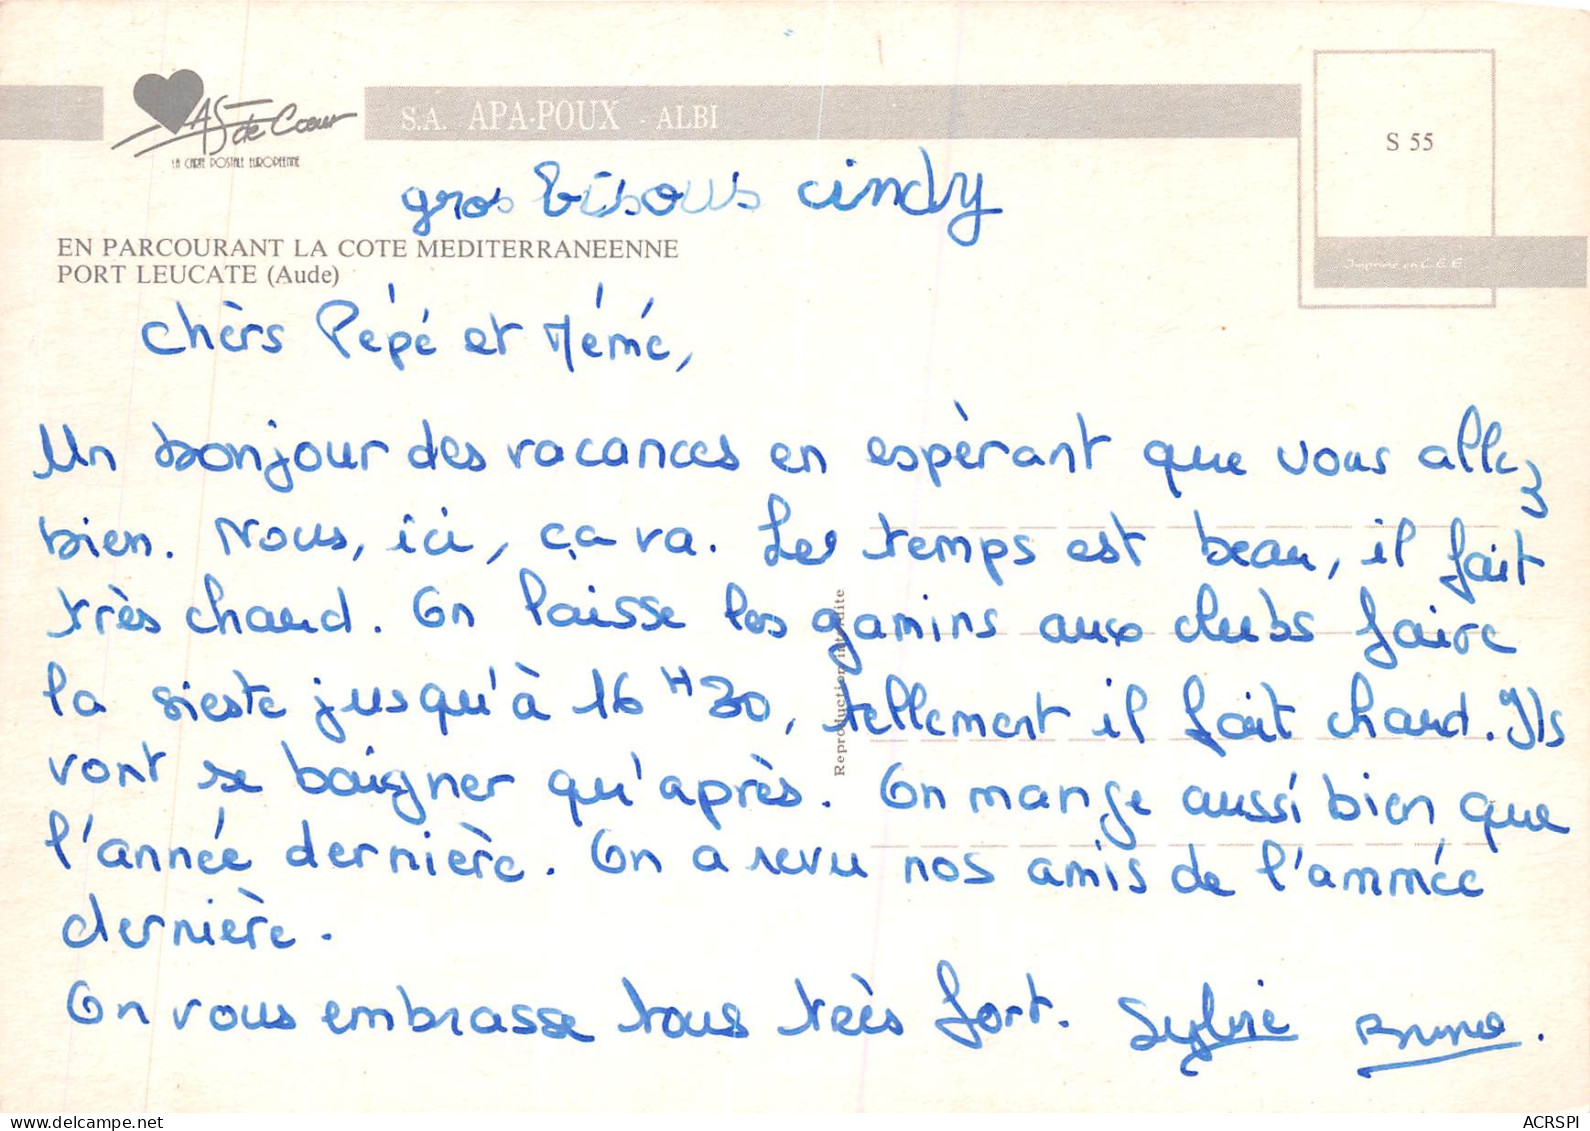 AS de Coeur
LA CARTE POSTALE EUROPEENNE
S.A. APA-POUX - ALBI
S 55
gros bisous cindy
EN PARCOURANT LA COTE MEDITERRANEENNE
PORT LEUCATE (Aude)
Imprimé en C.E.E.
Chèrs Pépé et Mémé,
Un bonjour des vacances en espèrant que vous allez
bien. Nous, ici, ça va. Le temps est beau, il fait
très chaud. On laisse les gamins aux clubs faire
la sieste jusqu'à 16H30, tellement il fait chaud. Ils
vont se baigner qu'après. On mange aussi bien que
l'année dernière. On a revu nos amis de l'année
dernière.
On vous embrasse tous très fort. Sylvie Bruno.
Reproduction interdite
ACRSPI